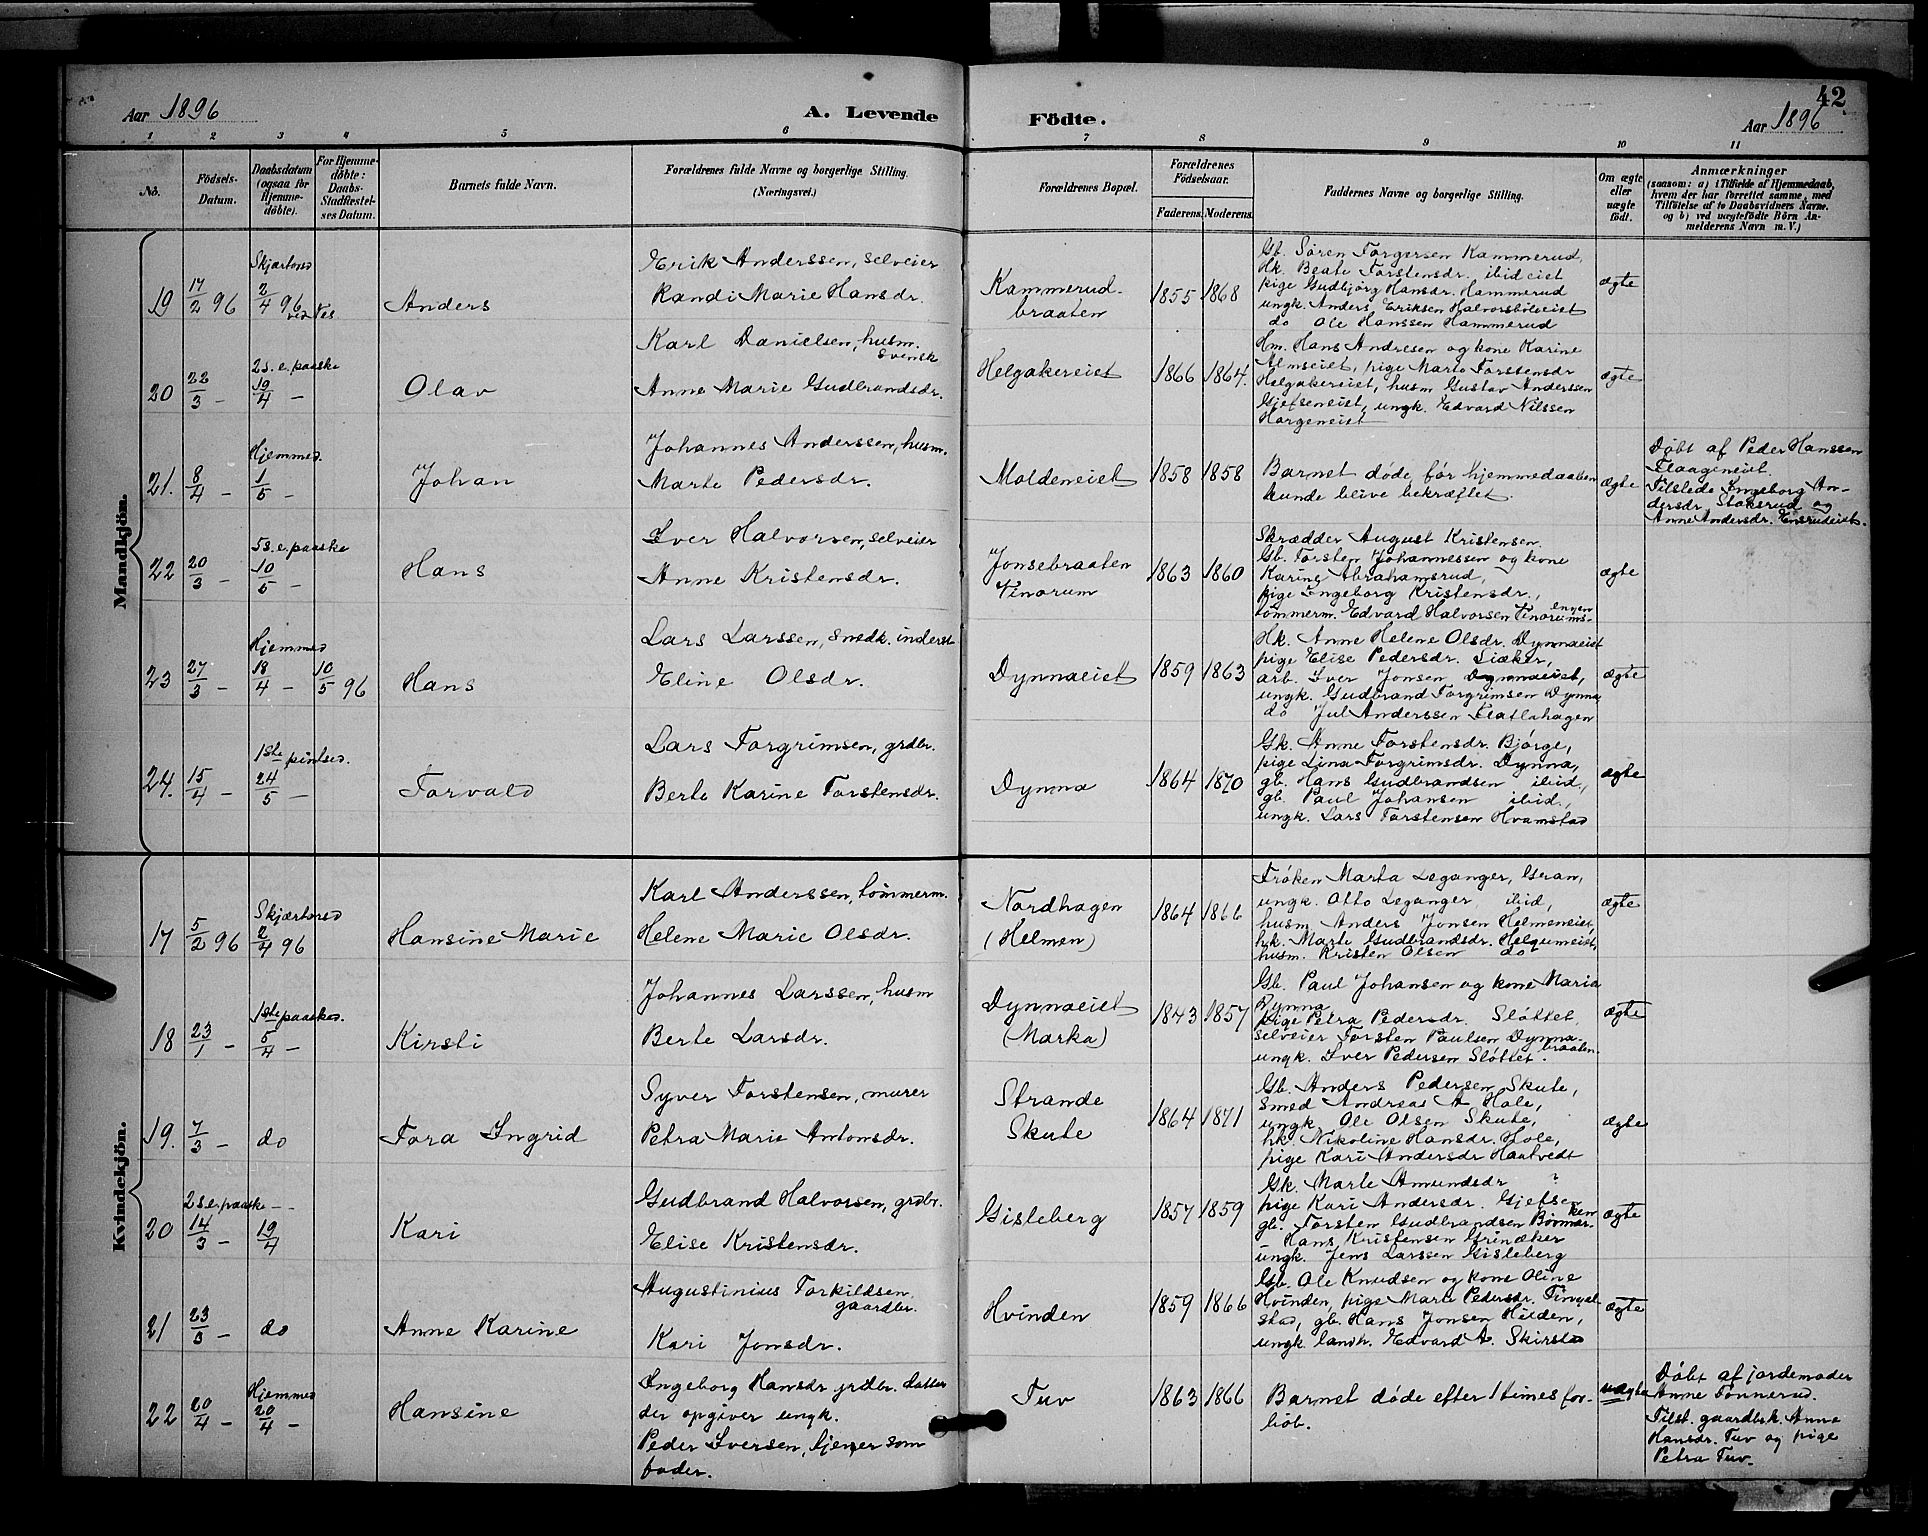 42
Aar 1896
A. Levende
Födte.
Aar 1896
1 2 3 4 5 6 7 8 9 10 11
No.
Födsels-Datum.
Daabsdatum (ogsaa for Hjemme-döbte).
For Hjemme-döbte: Daabs-Stadfæstel-ses Datum.
Barnets fulde Navn.
Forældrenes fulde Navne og borgerlige Stilling. (Næringsvei.)
Forældrenes Bopæl.
Forældrenes Födselsaar.
Faderens. Moderens.
Faddernes Navne og borgerlige Stilling.
Om ægte eller uægte födt.
Anmærkninger
(saasom: a) i Tilfælde af Hjemmedaab, hvem der har forrettet samme, med Tilföielse af to Daabsvidners Navne. og b) ved uægtefödte Börn An-melderens Navn m. V.)
Mandkjön.
19 17/2 96 Skjærtorsd 2/4 96
Anders
Erik Anderssen, selveier
Randi Marie Hansdr.
Kammerud-
braaten
1855 1868
Gb. Søren Torgersen Kammerud,
Hk. Beate Torstensdr. ibideiet
pige Gudbjörg Hansdr. Hammerud
ungk. Anders Eriksen Halvorsböleeiet
do Ole Hanssen Hammerud
ægte
20 22/3 — 2 s. e. paaske 19/4 —
Olav
Karl Danielsen, husm.
svensk
Anne Marie Gudbrandsdr.
Helgakereiet
1866 1864.
Hm. Hans Andresen og kone Karine
Almseiet, pige Marte Torstensdr
Helgakereiet, husm Gustav Anderssen
Gjefseneiet, ungk. Edvard Nilssen
Horgeneiet
ægte
21. 8/4 — Hjemmed. 1/5 —
Johan
Johannes Anderssen, husm.
Marte Pedersdr.
Moldeneiet
1858 1858
Barnet döde för hjemmedaaben
kunde blive bekræftet.
ægte
Döbt af Peder Hanssen
Flaageneiet.
Tilstede Ingeborg An-
dersdr. Stokerud og
Anne Andersdr. Ensrudeiet.
22 20/3 — 5 s. e. paaske 10/5 —
Hans
Iver Halvorsen, selveier
Anne Kristensdr.
Jonsebraaten
Tinorum
1863 1860
Skrædder August Kristensen.
Gb. Torsten Johannessen og kone
Karine Abrahamsrud,
pige Ingeborg Kristensdr.,
tömmerm. Edvard Halvorsen Tinorums-
engen
ægte
23 27/3 — Hjemmed 18/4 — 10/5 96
Hans
Lars Larssen, smedk. inderst
Eline Olsdr.
Dynnaeiet
1859 1863
Hk. Anne Helene Olsdr. Dynnaeiet
pige Elise Pedersdr. Liaker,
arb. Iver Jonsen Dynnaeiet,
ungk. Gudbrand Torgrimsen Dynna
do Jul Anderssen Flatlahagen
ægte
24. 15/4 — 1ste pintsed. 24/5 —
Torvald
Lars Torgrimsen, grdbr.
Berte Karine Torstensdr.
Dynna
1864 1870
Gk. Anne Torstensdr. Bjørge,
pige Lina Torgrimsdr. Dynna,
gb. Hans Gudbrandsen ibid,
gb. Paul Johansen ibid.,
ungk. Lars Torstensen Hvamstad
ægte
Kvindekjön.
17 5/2 96 Skjærtorsd 2/4 96
Hansine Marie
Karl Anderssen, tömmerm.
Helene Marie Olsdr.
Nordhagen
(Helmen)
1864 1866
Fröken Marta Leganger, Gran,
ungk. Otto Leganger ibid,
husm Anders Jonsen Helmeneiet,
hk. Marte Gudbrandsdr. Helgumeiet,
husm. Kristen Olsen do
ægte
18 23/1 — 1ste paasked. 5/4 —
Kirsti
Johannes Larssen, husm
Berte Larsdr.
Dynnaeiet
(Marka)
1843 1857
Gb. Paul Johansen og kone Maria
Dynna
pige Petra Pedersdr. Slöttet,
selveier Torsten Paulsen Dynna-
braaten.
ungk. Iver Pedersen Slöttet.
ægte
19. 7/3 — do
Tora Ingrid
Syver Torstensen, murer
Petra Marie Antonsdr.
Strande
Skute
1864 1871
Gb. Anders Pedersen Skute,
Smed Andreas A Hole,
ungk. Ole Olsen Skute,
hk. Nikoline Hansdr. Hole,
pige Kari Andersdr Haatvedt
ægte
20 14/3 — 2 s. e. paaske — 19/4
Kari
Gudbrand Halvorsen, grdbr.
Elise Kristensdr.
Gisleberg
1857 1859
Gk. Marte Amundsdr ?
pige Kari Andersdr. Gjefsen
gb. Torsten Gudbrandsen Börmar-
ken
— Hans Kristensen Grinaker
ungk. Jens Larssen Gisleberg
ægte
21 23/3 — do
Anne Karine
Augustinius Torkildsen,
gaardbr.
Kari Jonsdr.
Hvinden
1859 1866
Gb. Ole Knudsen og kone Oline
Hvinden, pige Marte Pedersdr. Tingel-
stad, gb. Hans Jonsen Hilden,
ungk. landh. Edvard A. Skirstad
ægte
22 20/4 — Hjemmed 20/4 —
Hansine
Ingeborg Hansdr grdbr. datter
der opgiver ungk.
Peder Iversen, tjener som
fader.
Tuv
1863 1866
Barnet döde efter 1 times for-
löb.
uægte
Döbt af jordemoder
Anne Tonnerud.
Tilst. gaardbk. Anna
Hansdr. Tuv og pige
Petra Tuv.